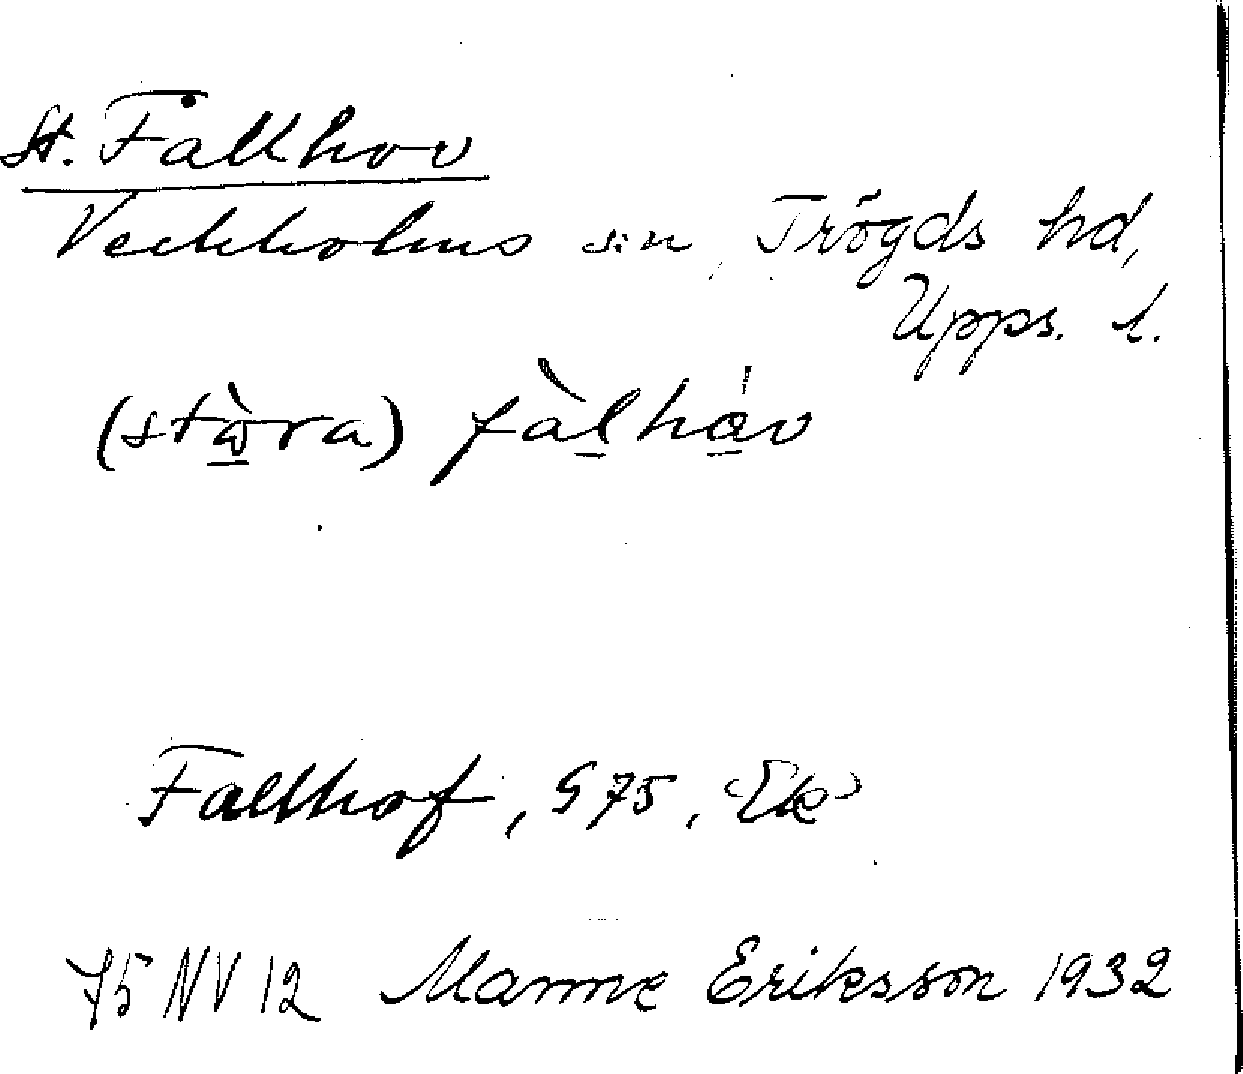 St. Fållhov
Veckholms sn, Trögds hd,
Upps. l.
(stɷ̀ra) fàlhav
Fallhof, G 75, Ek
75 NV 12 Manne Eriksson 1932